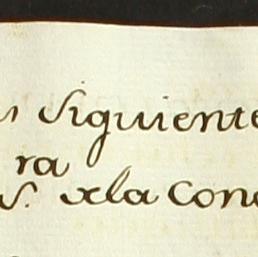 Siguiente
ra
S. dela Conc